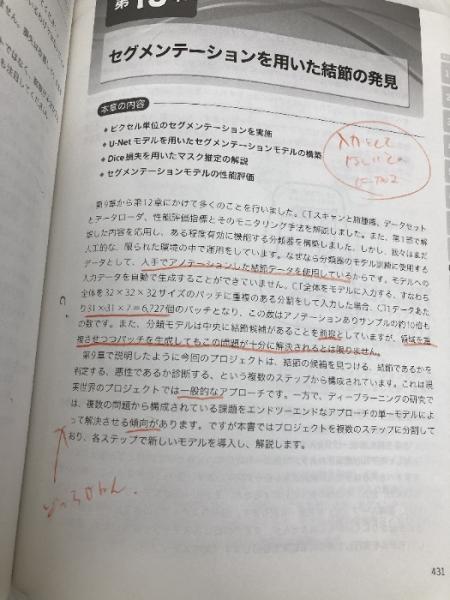 第13章
セグメンテーションを用いた結節の発見
本章の内容
◆ ピクセル単位のセグメンテーションを実施
◆ U-Net モデルを用いたセグメンテーションモデルの構築
◆ Dice損失を用いたマスク推定の解説
◆ セグメンテーションモデルの性能評価
第9章から第12章にかけて多くのことを行いました。CTスキャンと肺腫瘍、データセット
とデータローダ、性能評価指標とそのモニタリング手法を解説しました。また、第1部で解
説した内容を応用し、ある程度有効に機能する分類器を構築しました。しかし、我々はまだ
人工的な、限られた環境の中で運用をしています。なぜなら分類器のモデル訓練に使用する
データとして、人手でアノテーションした結節データを使用しているからです。モデルへの
入力データを自動で生成することができていません。CT全体をモデルに入力する、すなわち
全体を32×32×32サイズのパッチに重複のある分割をして入力した場合、CT1データあた
り31×31×7＝6,727個のパッチとなり、この数はアノテーションありサンプルの約10倍も
の数です。また、分類モデルは中央に結節候補があることを前提としていますが、領域を重
複させつつパッチを生成してもこの問題が十分に解決されるとは限りません。
第9章で説明したように今回のプロジェクトは、結節の候補を見つける、結節であるかを
判定する、悪性であるか診断する、という複数のステップから構成されています。これは現
実世界のプロジェクトでは一般的なアプローチです。一方で、ディープラーニングの研究で
は、複数の問題から構成されている課題をエンドツーエンドなアプローチの単一モデルによ
って解決させる傾向があります。ですが本書ではプロジェクトを複数のステップに分割して
おり、各ステップで新しいモデルを導入し、解説します。
431